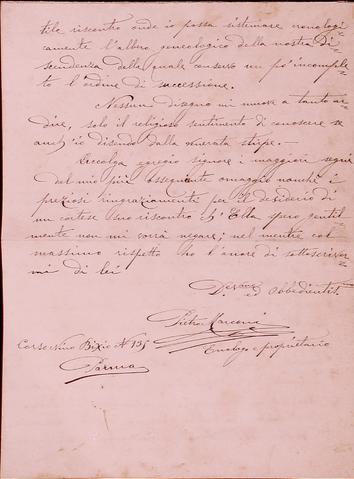 tile riscontro onde io possa sistemare cronologi-
camente l'albero geneologico della nostra Di-
scendenza della quale conservo un po' incomple-
to l'ordine di successione.
Nessun disegno mi muove a tanto ar-
dire, solo il religioso sentimento di conoscere se
anch'io discendo dalla venerata stirpe.
Accolga egregio signore i maggiori segni
del mio più ossequiente omaggio nonchè i
preziosi ringraziamenti per il desiderio di
un cortese suo riscontro ch'Ella spero gentil-
mente non mi vorrà negare; nel mentre col
massimo rispetto ho l'onore di sottoscriver-
mi di lei
Dev.mo ed obbedientis.
Pietro Marconi
Enologo e proprietario
Corso Nino Bixio N 135
Parma